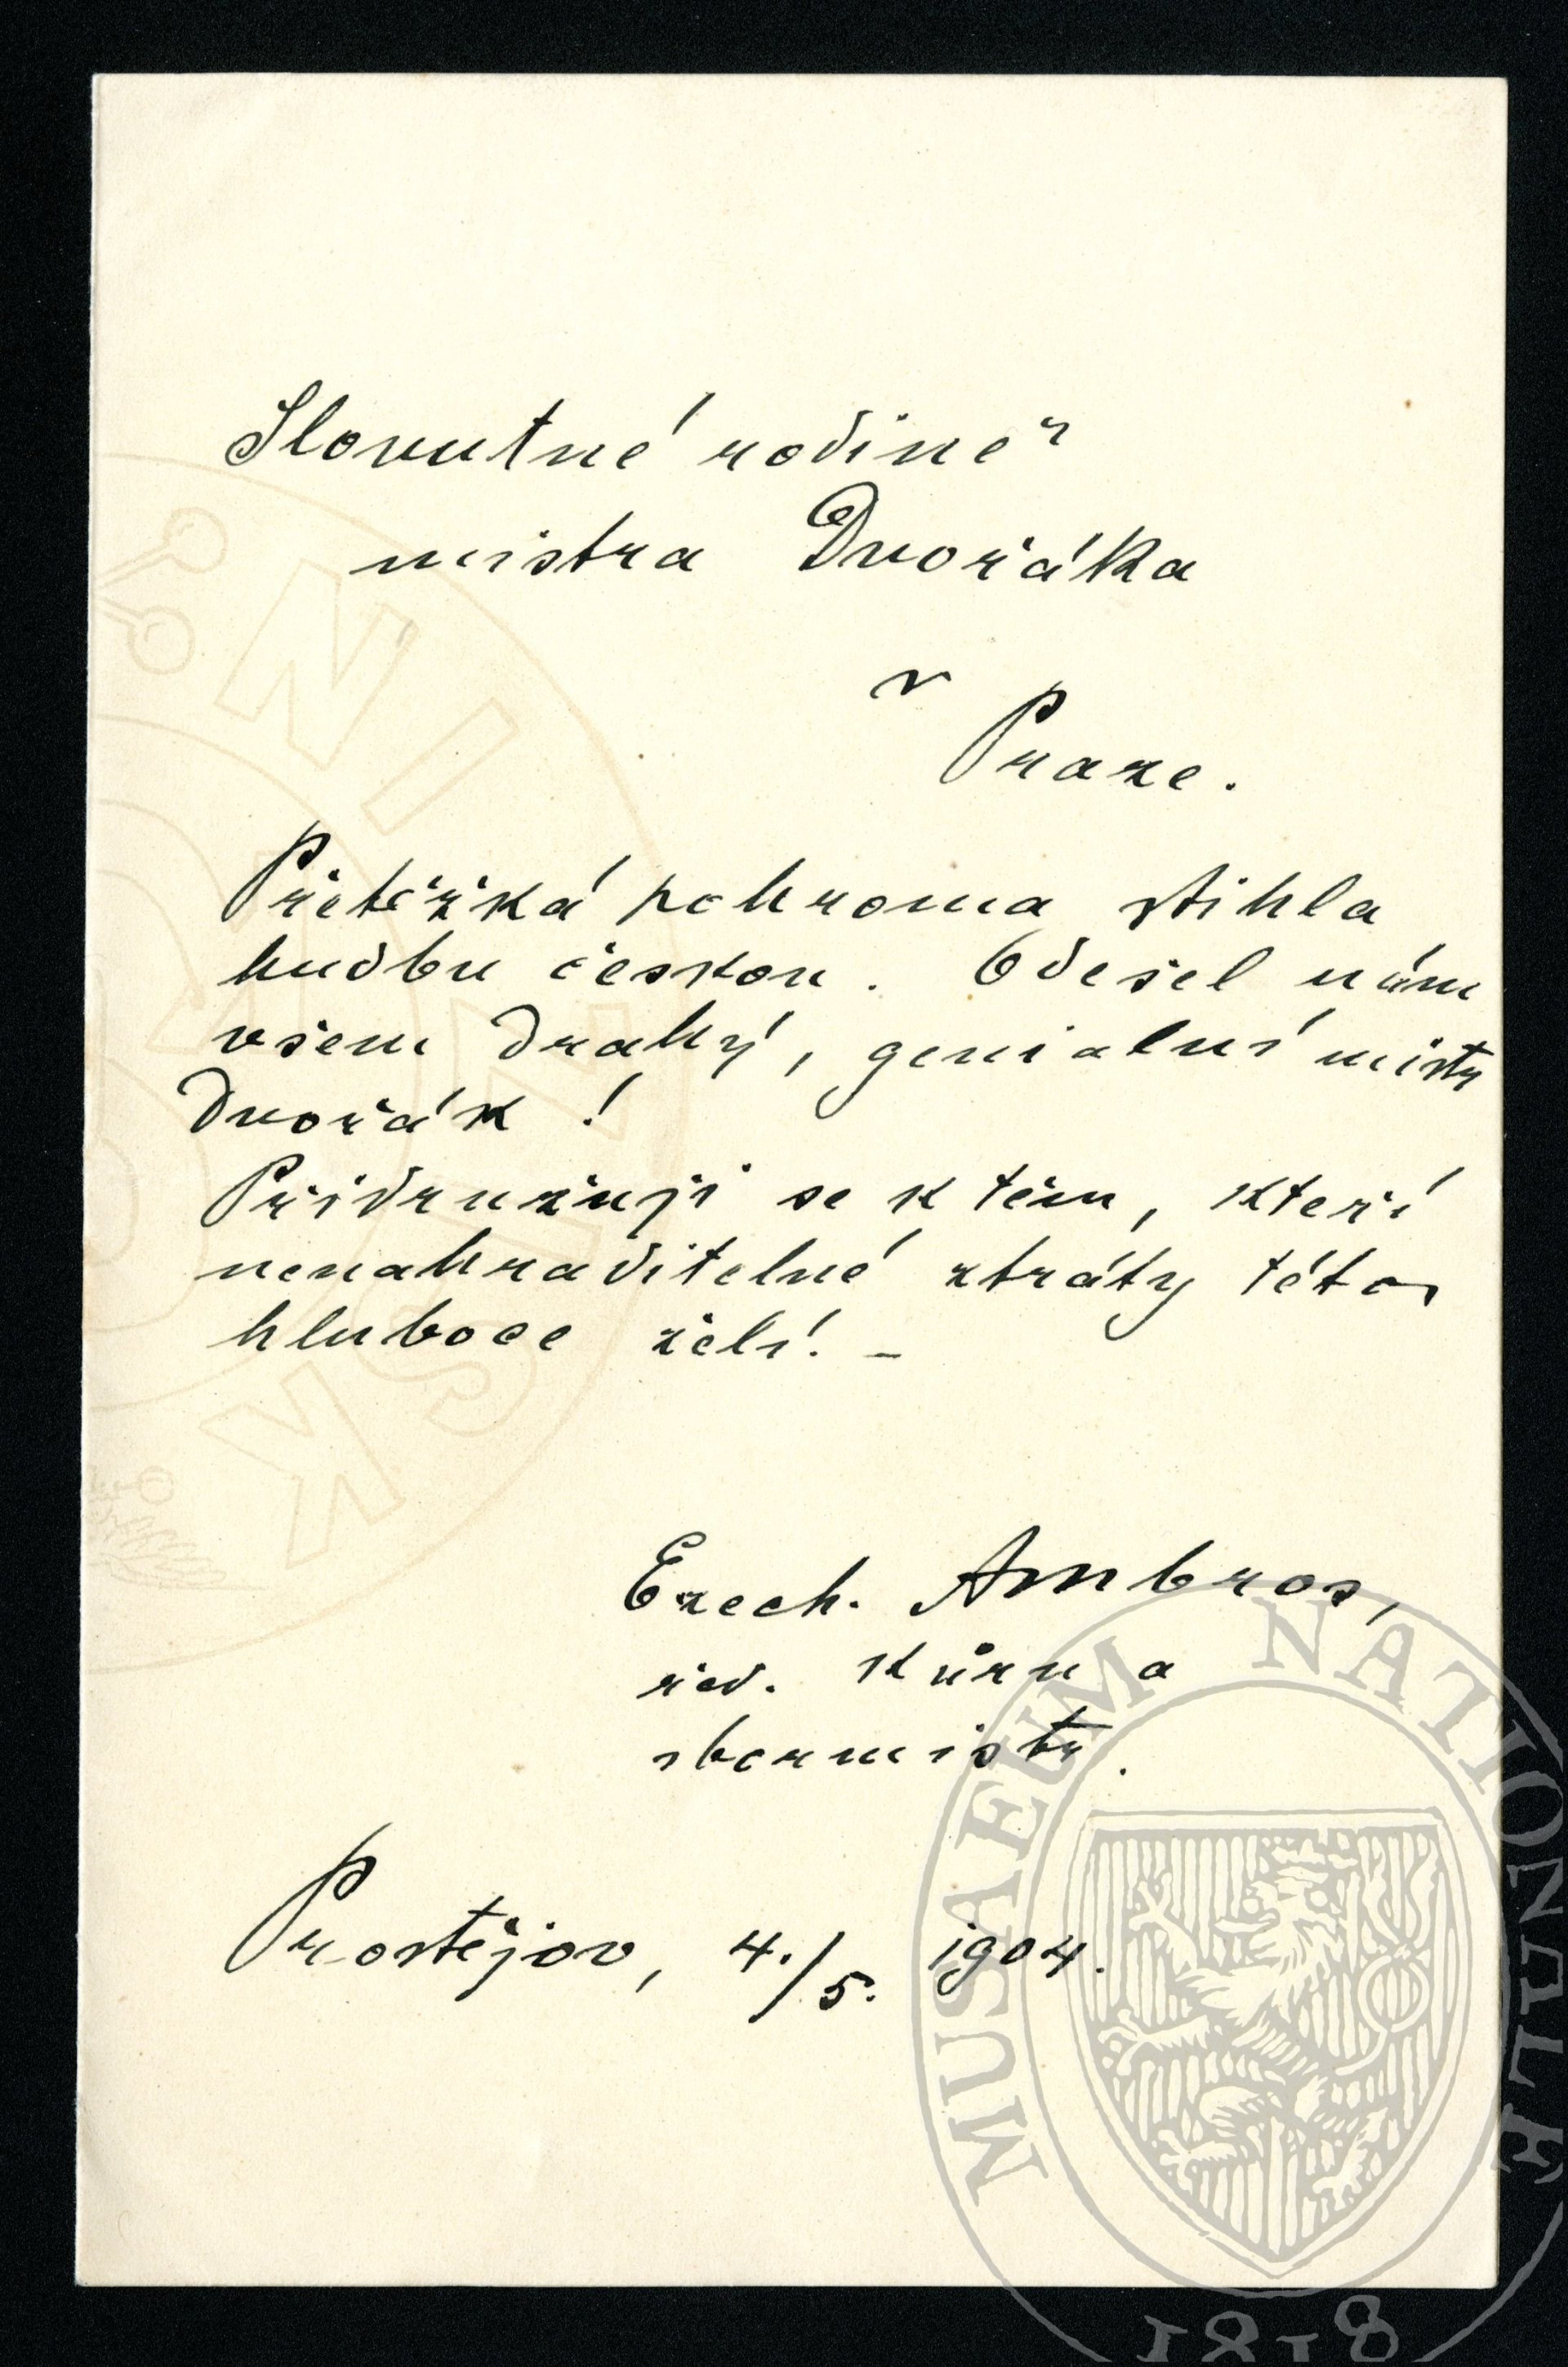 Slovutné rodině
mistra Dvořáka
v
Praze.
Přetěžká pohroma stihla
hudbu českou. Odešel nám
všem drahý, genialní mistr
Dvořák!
Přidružuji se k těm, kteří
nenahraditelné ztráty této
hluboce želí! –
Ezech. Ambros,
řed. kůru a
sbormistr.
Prostějov, 4./5. 1904.
MUSAEUM NATIONALE
1818